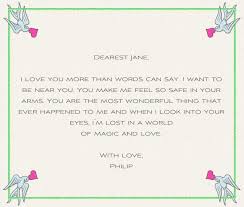 DEAREST JANE,
I LOVE YOU MORE THAN WORDS CAN SAY. I WANT TO
BE NEAR YOU. YOU MAKE ME FEEL SO SAFE IN YOUR
ARMS. YOU ARE THE MOST WONDERFUL THING THAT
EVER HAPPENED TO ME AND WHEN I LOOK INTO YOUR
EYES, I'M LOST IN A WORLD
OF MAGIC AND LOVE.
WITH LOVE,
PHILIP